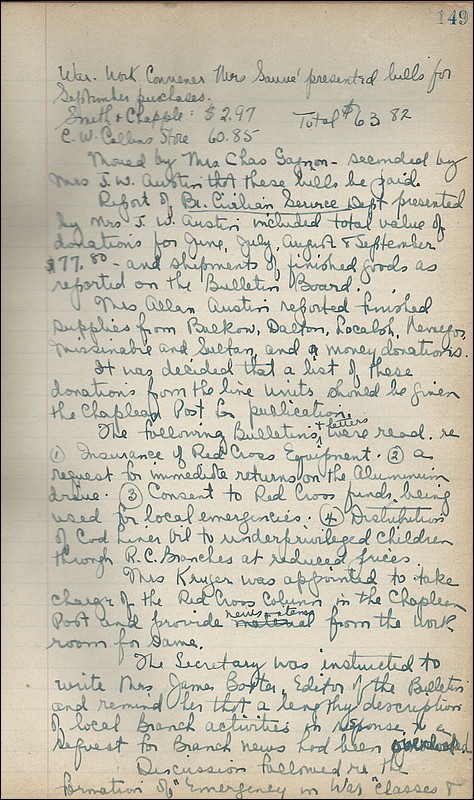 149
War. Work Convener Mrs Sauvé presented bills for
September purchases.
Smith & Chapple: $2.97 Total $63 82
C. W. Collins Store 60.85
Moved by Mrs Chas Gagnon - seconded by
Mrs J. W. Austin that these bills be paid.
Report of Br. Civilian Service Dept presented
by Mrs. J. W. Austin included total value of
donations for June, July, August & September
$77.80 - and shipments of finished goods as
reported on the Bulletin Board.
Mrs. Allan Austin reported finished
supplies from Balkow, Dalton, Rocaloh, Nemegos,
Missinabie and Sultan, and a money donations.
It was decided that a list of these
donations from the line units should be given
the Chapleau Post for publication.
The following Bulletins + letters were read. re
① Insurance of Red Cross Equipment. ② a
request for immediate returns on the Aluminium
drive. ③ Consent to Red Cross funds being
used for local emergencies. ④ Distribution
of Cod Liver Oil to underprivileged children
through R.C. Branches at reduced prices.
Mrs Kruger was appointed to take
charge of the Red Cross Column in the Chapleau
Post and provide material news items from the work
room for same.
The Secretary was instructed to
write Mrs. James Baxter, Editor of the Bulletin
and remind her that a lengthy description
of local Branch activities in response to a
request for Branch news had been overlooked
Discussion followed re the
formation of "Emergency in War" classes &